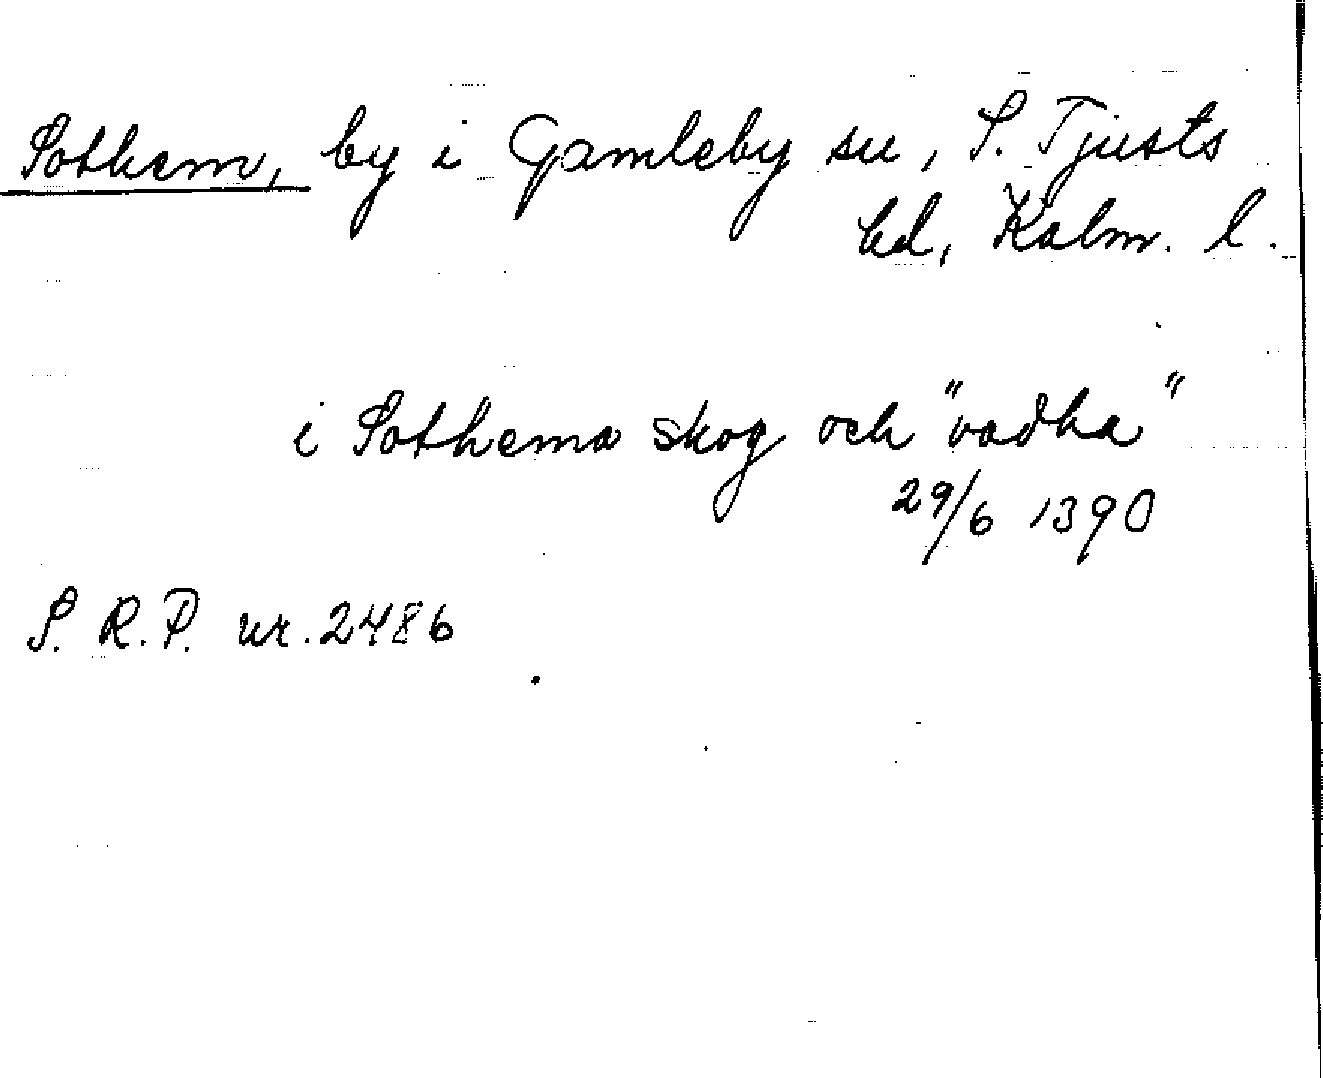 Sothem, by i Gamleby sn, S. Tjusts
hd, Kalm. l.
i Sothema skog och "vadha"
29/6 1390
S. R. P. nr. 2486